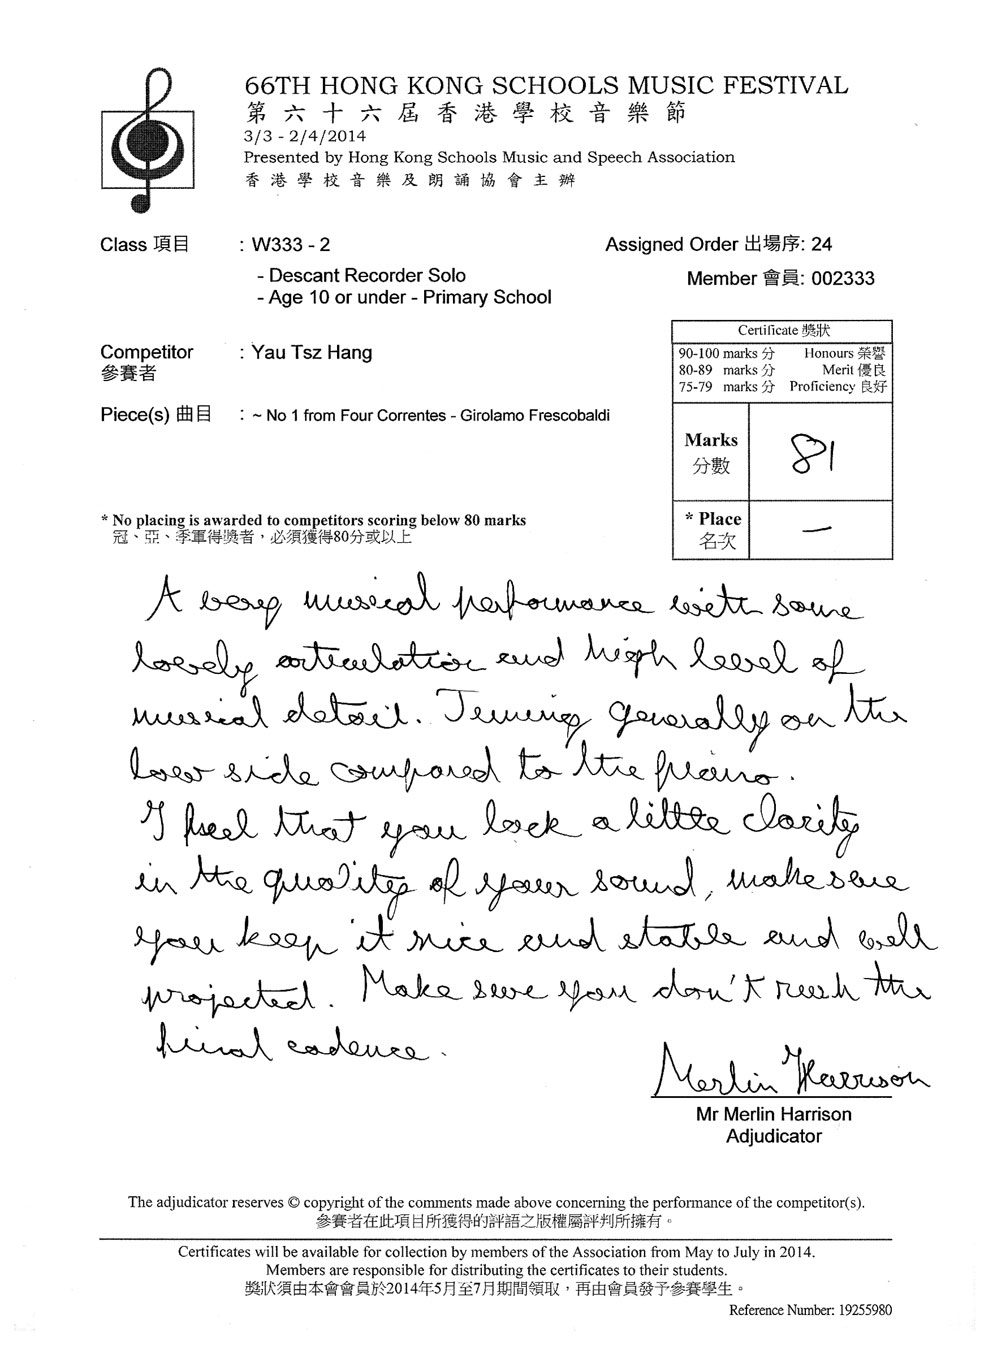 66TH HONG KONG SCHOOLS MUSIC FESTIVAL
第六十六屆香港學校音樂節
3/3 - 2/4/2014
Presented by Hong Kong Schools Music and Speech Association
香港學校音樂及朗誦協會主辦
Class 項目 : W333 - 2
Assigned Order 出場序: 24
- Descant Recorder Solo
Member 會員: 002333
- Age 10 or under - Primary School
Certificate 獎狀
90-100 marks 分 Honours 榮譽
80-89 marks 分 Merit 優良
75-79 marks 分 Proficiency 良好
Competitor : Yau Tsz Hang
參賽者
Piece(s) 曲目 : ~ No 1 from Four Correntes - Girolamo Frescobaldi
Marks 81
分數
* Place —
名次
* No placing is awarded to competitors scoring below 80 marks
冠、亞、季軍得獎者，必須獲得80分或以上
A very musical performance with some
lovely articulation and high level of
musical detail. Tuning generally on the
low side compared to the piano.
I feel that you lack a little clarity
in the quality of your sound, make sure
you keep it nice and stable and well
projected. Make sure you don't rush the
final cadence.
Merlin Harrison
Mr Merlin Harrison
Adjudicator
The adjudicator reserves © copyright of the comments made above concerning the performance of the competitor(s).
參賽者在此項目所獲得的評語之版權屬評判所擁有。
Certificates will be available for collection by members of the Association from May to July in 2014.
Members are responsible for distributing the certificates to their students.
獎狀須由本會會員於2014年5月至7月期間領取，再由會員發予參賽學生。
Reference Number: 19255980